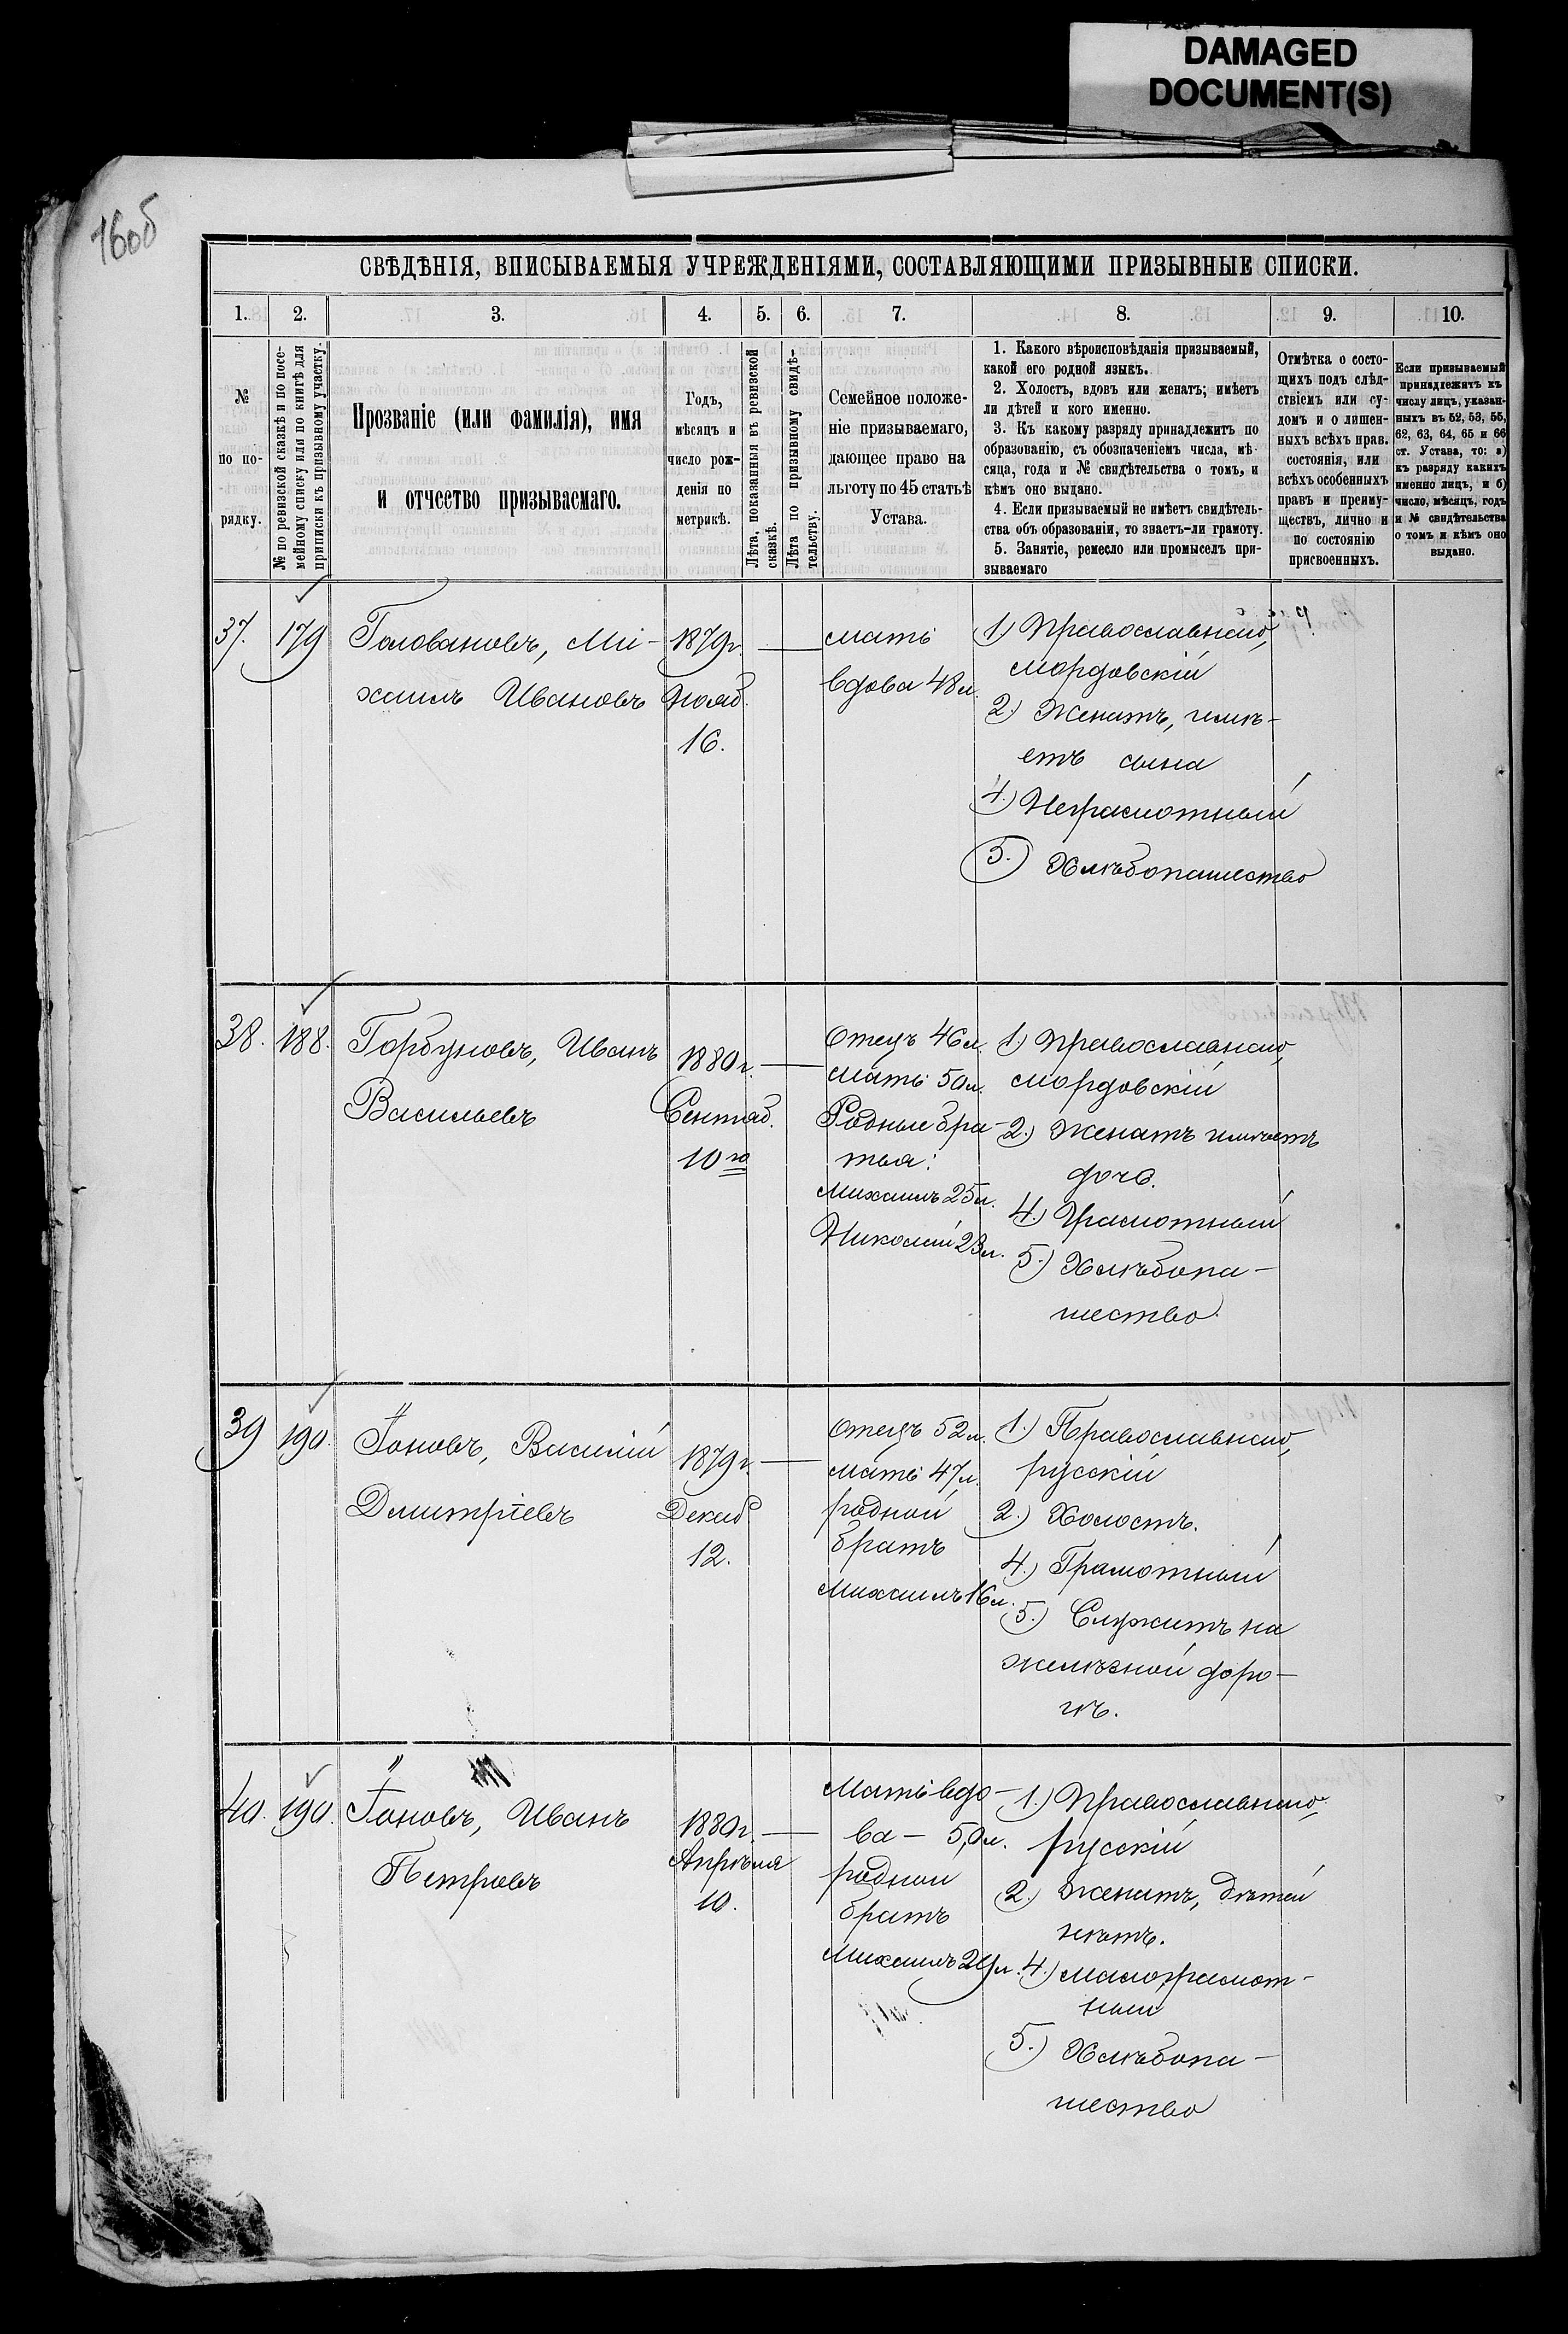 DAMAGED
DOCUMENT(S)
160б
СВѢДѢНІЯ, ВПИСЫВАЕМЫЯ УЧРЕЖДЕНІЯМИ, СОСТАВЛЯЮЩИМИ ПРИЗЫВНЫЕ СПИСКИ.
1. 2. 3. 4. 5. 6. 7. 8. 9. 10.
№
по по-
рядку.
№ по ревизской сказкѣ и по посе-
мейному списку или по книгѣ для
приписки къ призывному участку.
Прозваніе (или фамилія), имя
и отчество призываемаго.
Годъ,
мѣсяцъ и
число рож-
денія по
метрикѣ.
Лѣта, показанныя въ ревизской
сказкѣ.
Лѣта по призывному свидѣ-
тельству.
Семейное положе-
ніе призываемаго,
дающее право на
льготу по 45 статьѣ
Устава.
1. Какого вѣроисповѣданія призываемый,
какой его родной языкъ.
2. Холостъ, вдовъ или женатъ; имѣетъ
ли дѣтей и кого именно.
3. Къ какому разряду принадлежитъ по
образованію, съ обозначеніемъ числа, мѣ-
сяца, года и № свидѣтельства о томъ, и
кѣмъ оно выдано.
4. Если призываемый не имѣетъ свидѣтель-
ства объ образованіи, то знаетъ-ли грамоту.
5. Занятіе, ремесло или промыселъ при-
зываемаго
Отмѣтка о состо-
щихъ подъ слѣд-
ствіемъ или су-
домъ и о лишен-
ныхъ всѣхъ прав.
состоянія, или
всѣхъ особенныхъ
правъ и преиму-
ществъ, лично и
по состоянію
присвоенныхъ.
Если призываемый
принадлежитъ къ
числу лицъ, указан-
ныхъ въ 52, 53, 55,
62, 63, 64, 65 и 66
ст. Устава, то: а)
къ разряду какихъ
именно лицъ, и б)
число, мѣсяцъ, годъ
и № свидѣтельства
о томъ и кѣмъ оно
выдано.
37. 179
Головановъ, Ми-
хаилъ Ивановъ
1879г.
Нояб.
16.
мать
вдова 48л.
1) Православнаго,
мордовскій
2.) Женатъ, имѣ-
етъ сына
4.) Неграмотный
5.) Хлѣбопашество
38. 188.
Горбуновъ, Иванъ
Васильевъ
1880г.
Сентяб.
10го
Отецъ 46л.
мать 50л.
Родные бра-
тья:
Михаилъ 25л.
Николай 23л.
1.) Православнаго,
мордовскій
2.) Женатъ имѣетъ
дочь.
4.) Грамотный
5.) Хлѣбопа-
шество.
39 190.
Іоновъ, Василій
Дмитріевъ
1879г.
Декаб
12.
Отецъ 52л.
мать 47л.
родной
братъ
Михаилъ 16л.
1.) Православнаго,
русскій
2.) Холостъ.
4.) Грамотный
5.) Служитъ на
желѣзной доро-
гѣ.
40. 190.
Іоновъ, Иванъ
Петровъ
1880г.
Апрѣля
10.
Мать вдо-
ва - 50л.
родной
братъ
Михаилъ 29л.
1.) Православнаго,
русскій
2.) Женатъ, дѣтей
нѣтъ.
4.) Малограмот-
ный
5.) Хлѣбопа-
шество